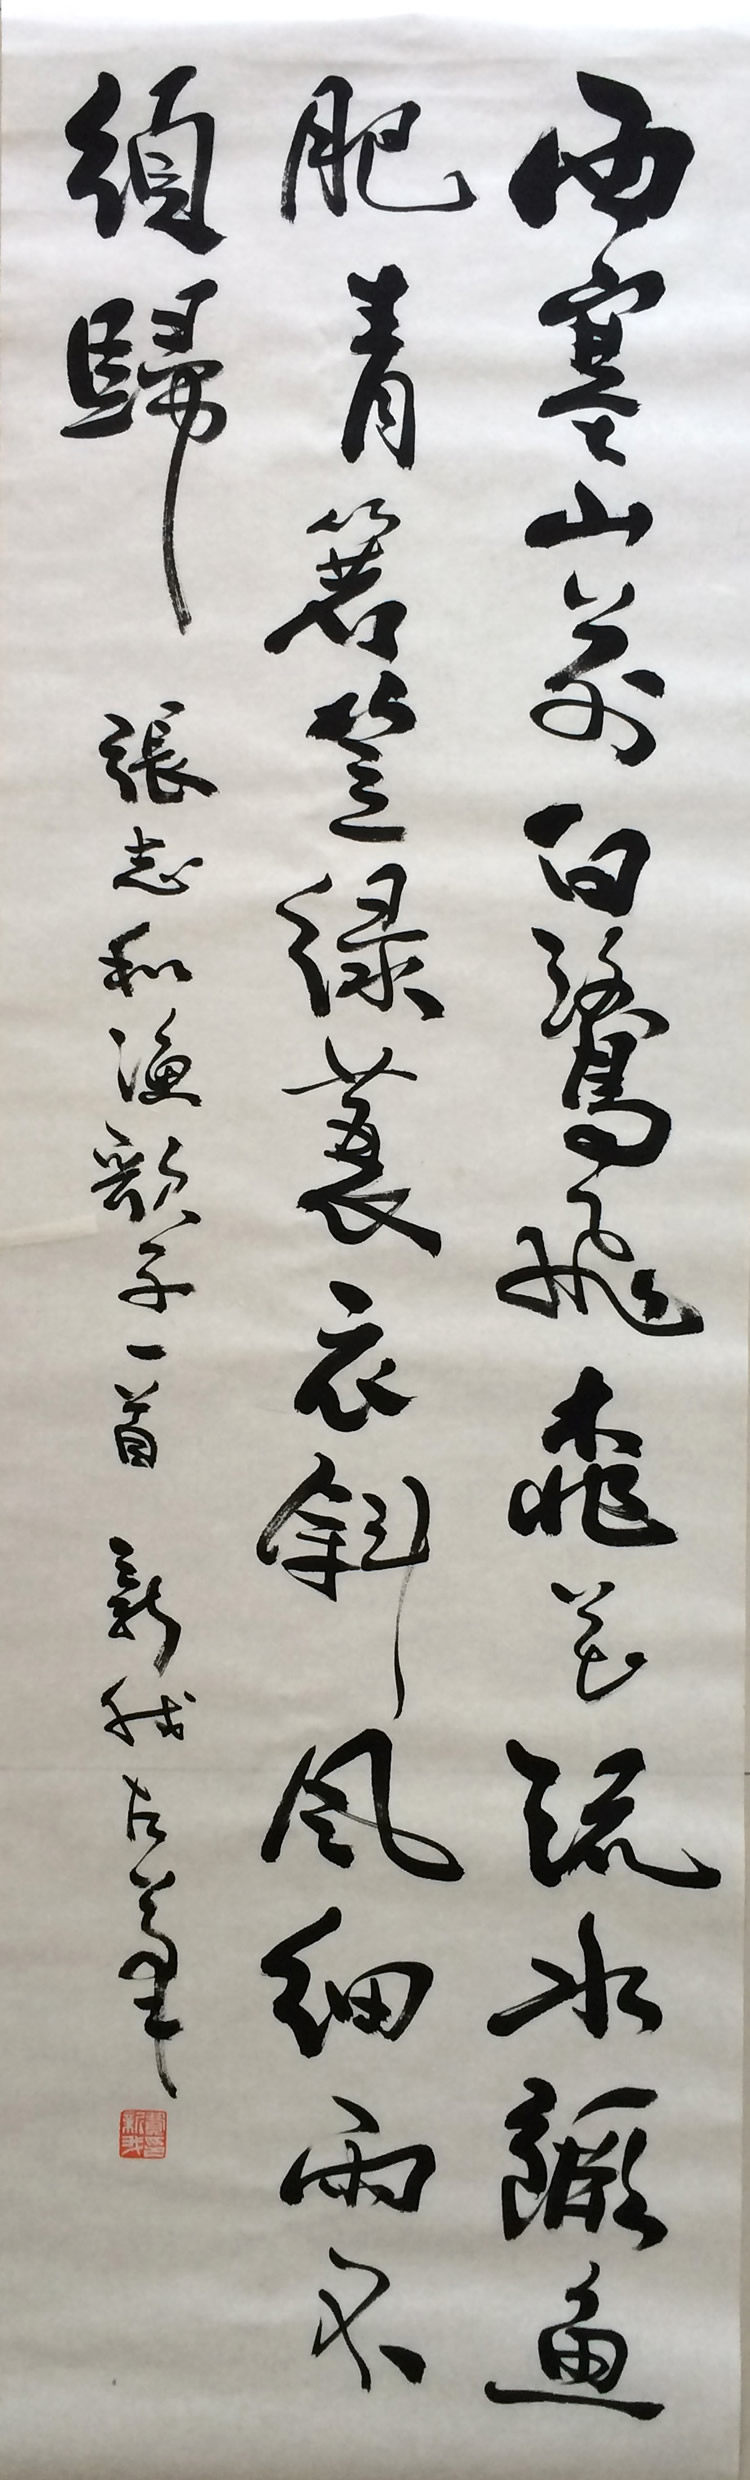 西塞山前白鹭飛桃花流水鱖魚
肥青箬笠緑蓑衣斜風細雨不
須歸
張志和漁歌子一首 新